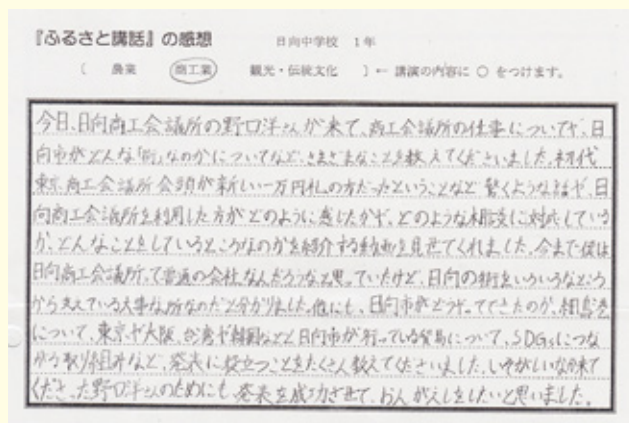 『ふるさと講話』の感想 日向中学校 1年
〔 農業 商工業 観光・伝統文化 〕← 講演の内容に ○ をつけます。
今日、日向商工会議所の野口洋さんが来て、商工会議所の仕事についてや、日
向市がどんな「街」なのかについてなど、さまざまなことを教えてくださいました。初代
東京商工会議所会頭が新しい一万円札の方だったということなど驚くような話や、日
向商工会議所を利用した方がどのように感じたかや、どのような相談に対応している
か、どんなことをしているところなのかを紹介する動画を見せてくれました。今まで僕は
日向商工会議所って普通の会社なんだろうなと思っていたけど、日向の街をいろいろなところ
から支えている大事な所なのだと分かりました。他にも、日向市がどうやってできたのか、細島港
について、東京や大阪、台湾や韓国などと日向市が行っている貿易について、SDGsにつな
がる取り組みなど、発表に役立つことをたくさん教えてくださいました。いそがしいなか来て
くださった野口洋さんのためにも、発表を成功させて、おんがえしをしたいと思いました。